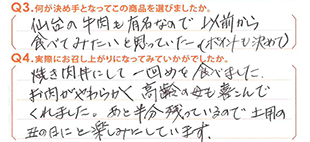 Q3.何が決め手となってこの商品を選びましたか。
仙台の牛肉も有名なので以前から
食べてみたいと思っていた(ポイントも決めて)
Q4.実際にお召し上がりになってみていかがでしたか。
焼き肉丼にして一回めを食べました。
お肉がやわらかく高齢の母も喜こんで
くれました。あと半分残っているので土用の
丑の日にと楽しみにしています。